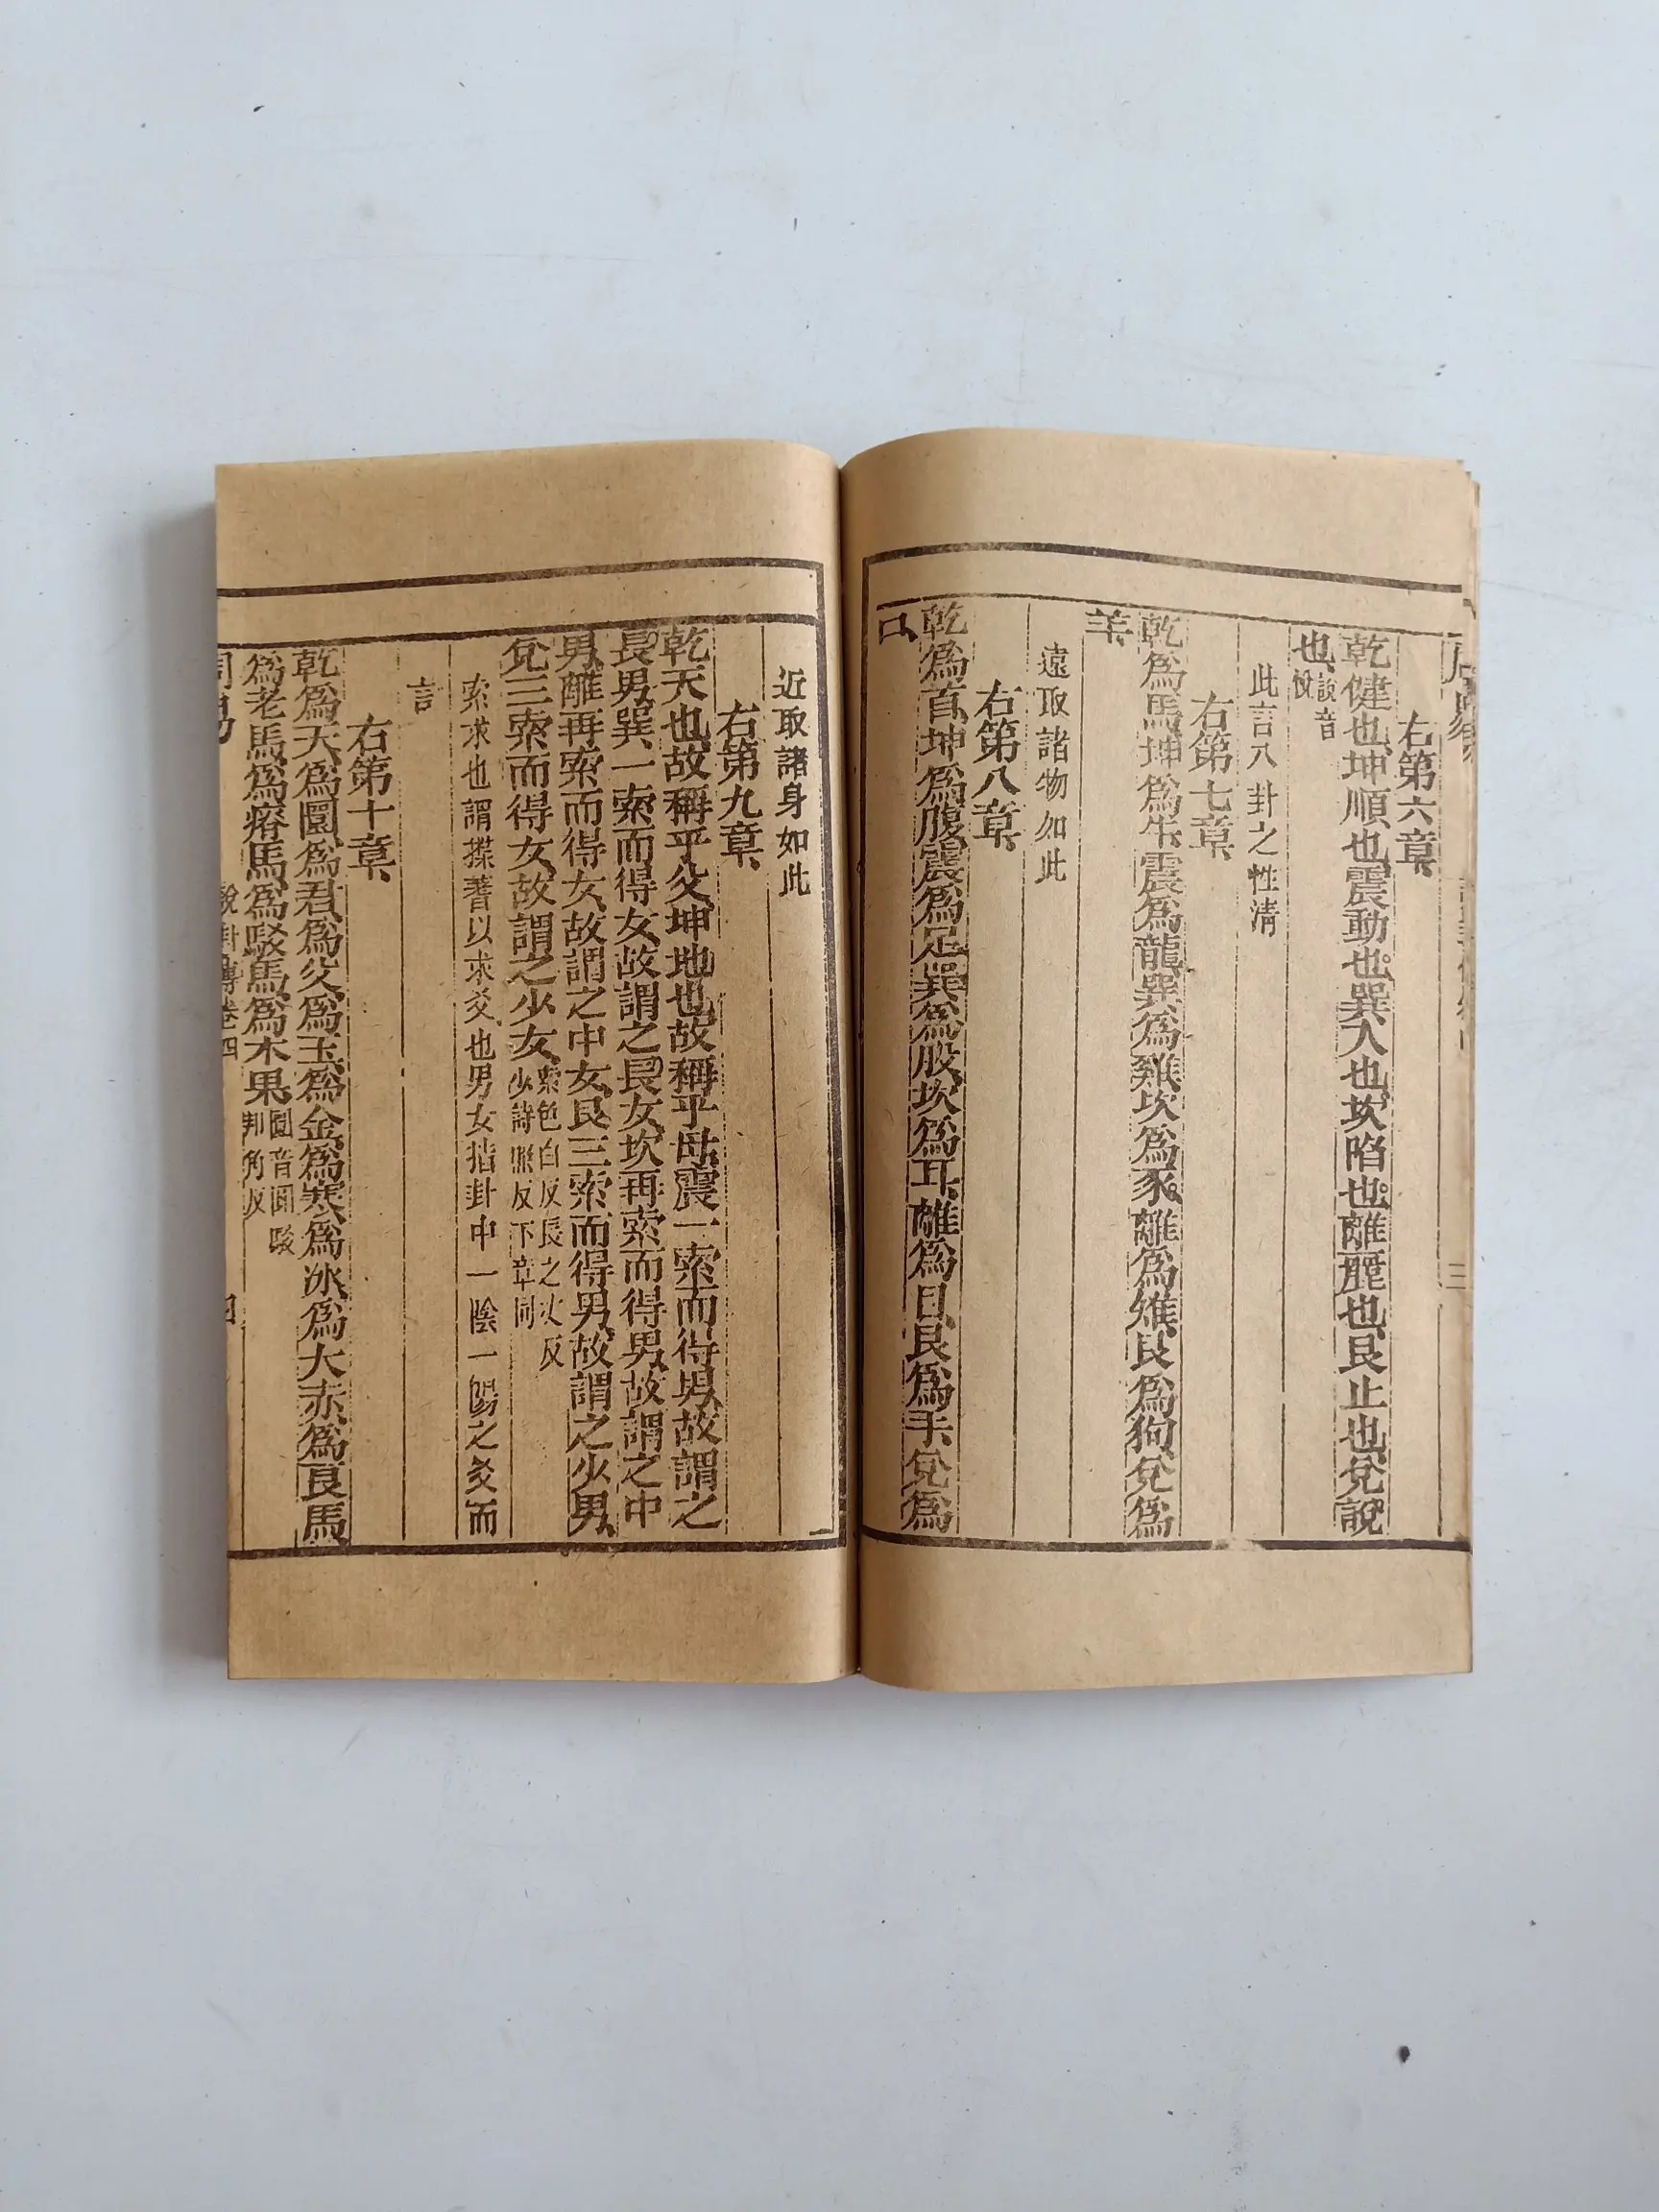 右第六章
乾健也坤順也震動也巽入也坎陷也離麗也艮止也兌說
也說音悅
此言八卦之性情
右第七章
乾爲馬坤爲牛震爲龍巽爲雞坎爲豕離爲雉艮爲狗兌爲
羊
遠取諸物如此
右第八章
乾爲首坤爲腹震爲足巽爲股坎爲耳離爲目艮爲手兌爲
口
近取諸身如此
右第九章
乾天也故稱乎父坤地也故稱乎母震一索而得男故謂之
長男巽一索而得女故謂之長女坎再索而得男故謂之中
男離再索而得女故謂之中女艮三索而得男故謂之少男
兌三索而得女故謂之少女索色白反長之丈反少詩照反下章同
索求也謂揲蓍以求爻也男女指卦中一陰一陽之爻而
言
右第十章
乾爲天爲圜爲君爲父爲玉爲金爲寒爲冰爲大赤爲良馬
爲老馬爲瘠馬爲駁馬爲木果圜音圓駁邦角反
周易 說卦傳卷四 四